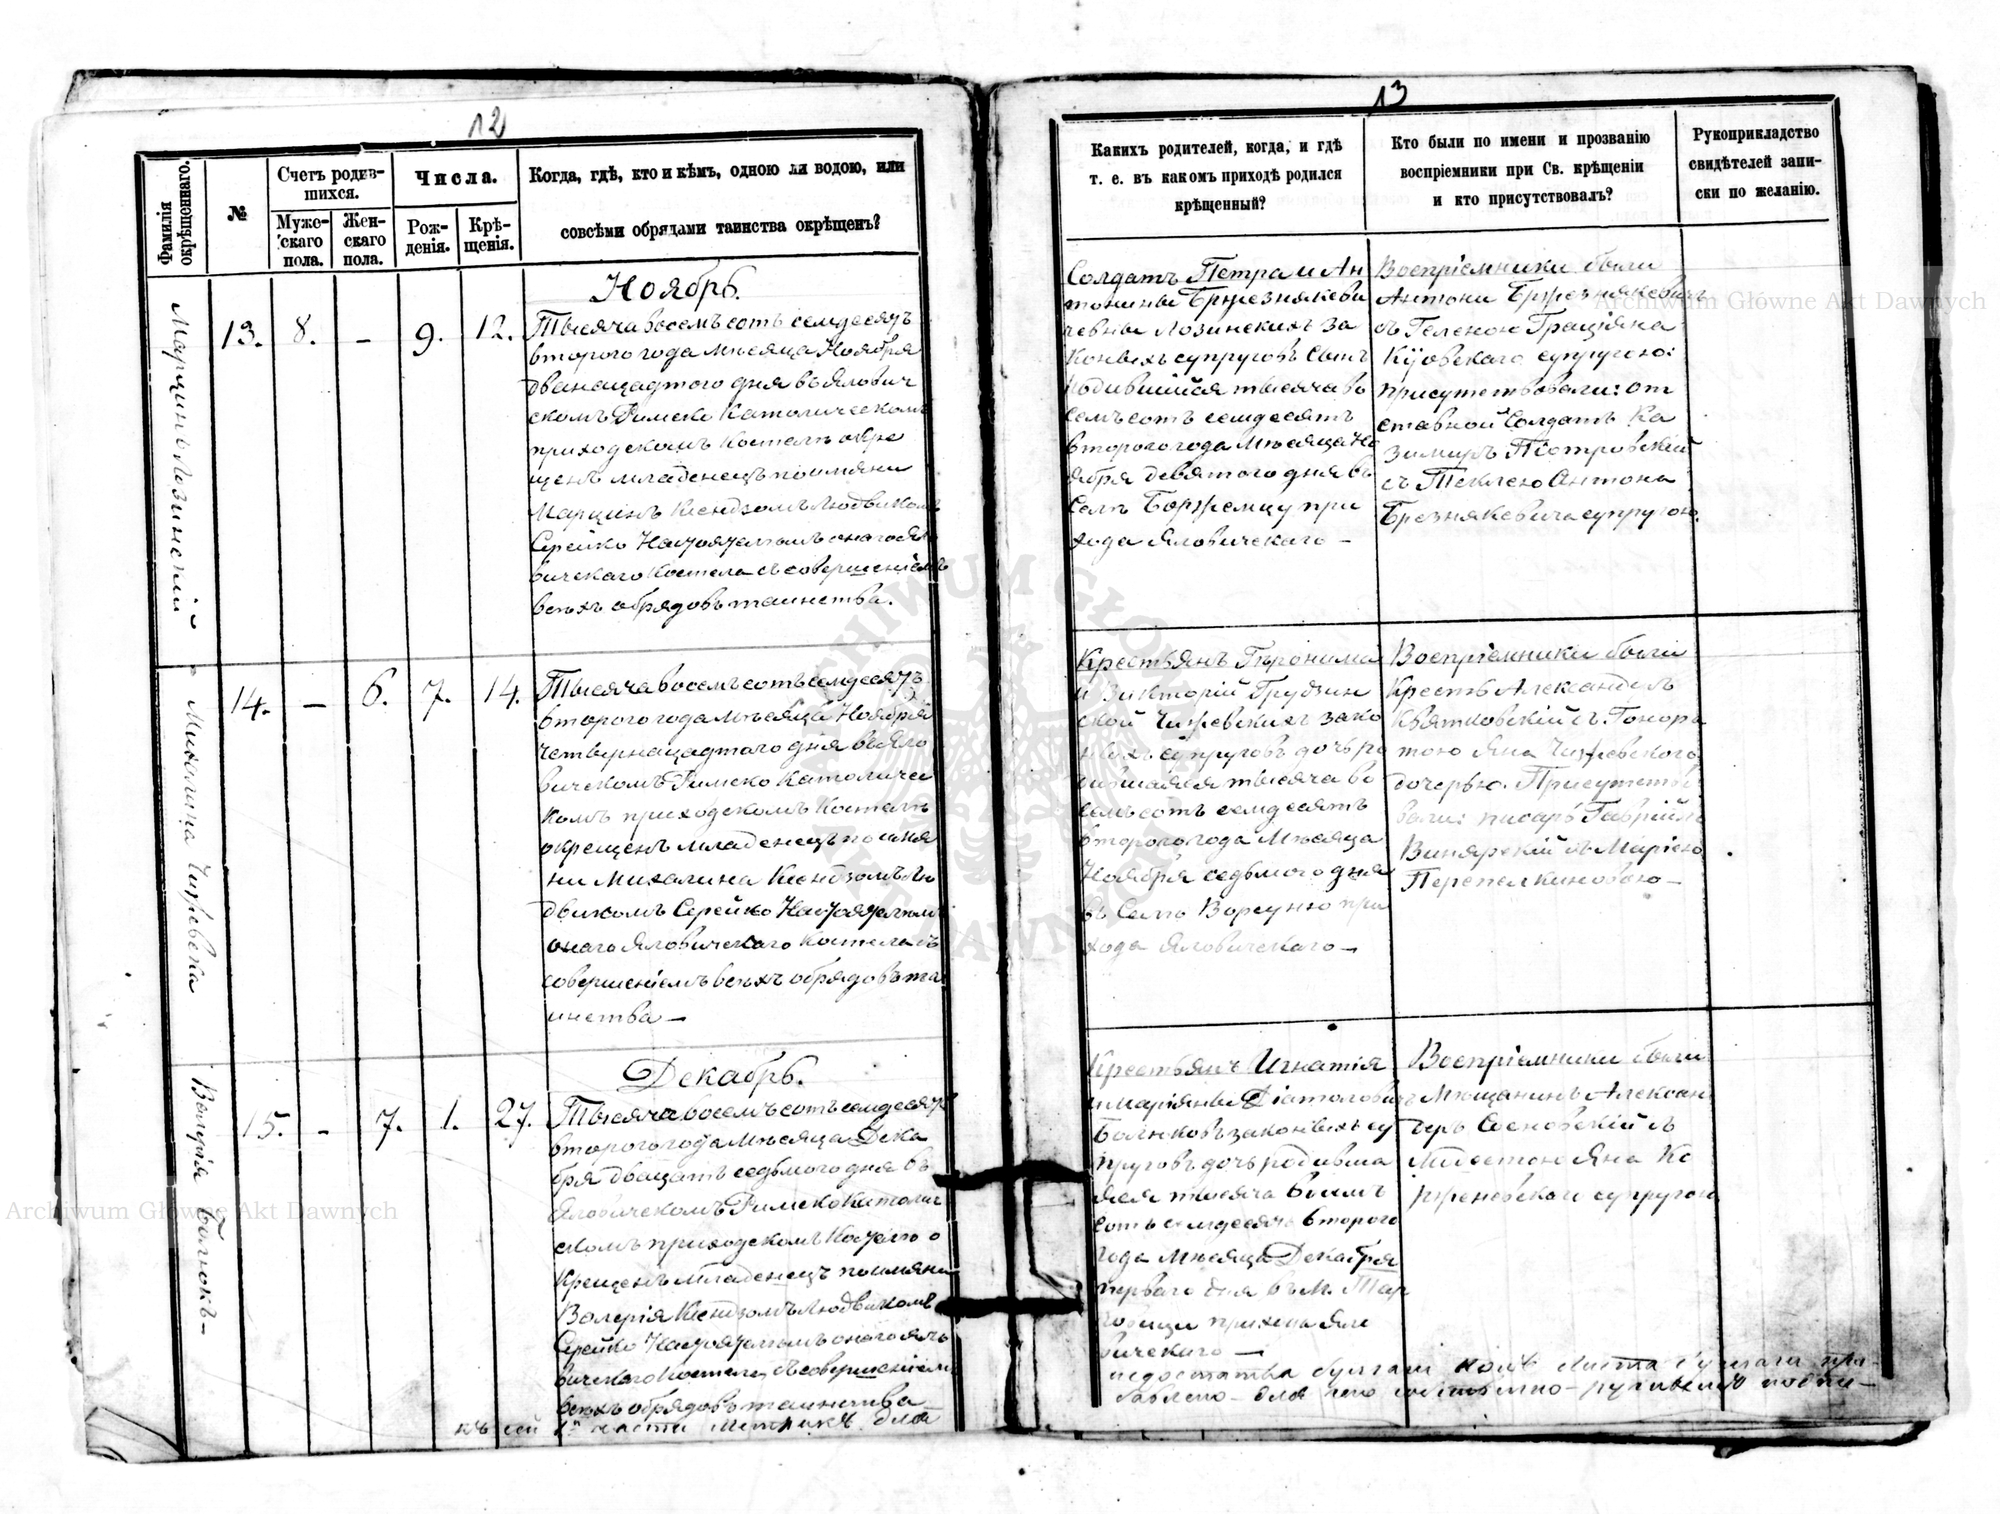 12
Фамилія окрѣщеннаго.
№
Счетъ родив-
шихся.
Муже-
скаго
пола.
Жен-
скаго
пола.
Числа.
Рож-
денія.
Крѣ-
щенія.
Когда, гдѣ, кто и кѣмъ, одною ли водою, или
совсѣми обрядами таинства окрѣщенъ?
Марцинъ Лозинскій
13.
8.
–
9.
12.
Ноябрь.
Тысяча восемъсотъ семдесятъ
второго года мѣсяца Ноября
дванацадтого дня въ Ялович
скомъ Римско Католическомъ
приходскомъ Костелѣ окре
щенъ младенецъ поимяни
Марцинъ Ксендзомъ Людвикомъ
Серейко Настоятелемъ оного Яло
вичскаго Костела съ совершеніемъ
всѣхъ обрядовъ таинства.
Михалина Чижевска
14.
–
6.
7.
14.
Тысяча восемъсотъ семдесятъ
второго года мѣсяца Ноября
четвернацадтого дня въ Яло
вичскомъ Римско Католичес
комъ приходскомъ Костелѣ
окрещенъ младенецъ по имя
ни Михалина Ксендзомъ Лю
двикомъ Серейко Настоятелемъ
оного Яловичского Костела съ
совершеніемъ всѣхъ обрядовъ таи
инства –
Валерія Балюкъ –
15.
–
7.
1.
27.
Декабрь.
Тысяча восемъсотъ семдесятъ
второго года мѣсяца Дека
бря двадцать седьмого дня въ
Яловичскомъ Римско Католич
скомъ приходскомъ Костелѣ о
крещенъ младенецъ поимяни
Валерія Ксендзомъ Людвикомъ
Серейко Настоятелемъ оного Яло
вичского Костела съ совершеніемъ
всѣхъ обрядовъ таинства
къ сей части метрикъ для
13
Какихъ родителей, когда, и гдѣ
т. е. въ какомъ приходѣ родился
крѣщенный?
Кто были по имени и прозванію
воспріемники при Св. крѣщеніи
и кто присутствовалъ?
Рукоприкладство
свидѣтелей запи-
ски по желанію.
Солдатъ Петра и Ан
тонины Бржезнякеви
чевны Лозинскихъ за
конныхъ супруговъ Сынъ
родившійся тысяча во
семъсотъ семдесятъ
второго года Мѣсяца Но
ября девятого дня въ
Селѣ Боржемцу при
хода Яловичскаго –
Воспріемники были
Антони Бржезнякевичъ
съ Геленою Граціяна
супругою:
присутствовали: от
ставной Солдатъ Ка
зимиръ Піотровскій
съ Теклею Антона
Брезнякевича супругою.
Крестьянъ Гиронима
и Викторій Грудзин
ской Чижевскихъ зако
нныхъ супруговъ дочь ро
дившаяся тысяча во
семъсотъ семдесятъ
второго года Мѣсяца
Ноября седьмого дня
въ Селѣ при
хода Яловичскаго –
Воспріемники были
Крестъ Александеръ
Квятковскій съ Гонора
тою Яна Чижевского
дочерью. Присутство
вали: писаръ Гавріилъ
Винярскій съ Маріею
Перепелкиновою –
Крестьянъ Игнатія
и Маріяны Діатоловичъ
Балюковъ законныхъ су
пруговъ дочь родивша
яся тысяча восемъ
сотъ семдесятъ второго
года Мѣсяца Декабря
первого дня въ М. Тар
говици прихода Яло
вичскаго –
Воспріемники были
Мѣщанинъ Александ
деръ Сосновскій съ
Яна Ко
рженевского супругою
недостатка бумаги листа бумаги при-
бавлено – для чего собственно-ручн
Archiwum Główne Akt Dawnych
Archiwum Główne Akt Dawnych
ARCHIWUM GŁÓWNE AKT DAWNYCH